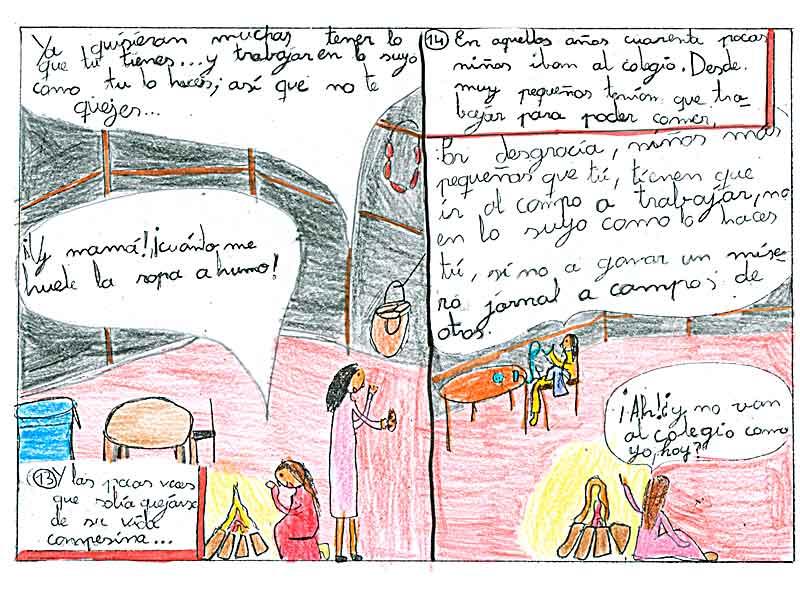 Ya quisieran muchas tener lo
que tu tienes... y trabajar en lo suyo
como tu lo haces; así que no te
quejes...
¡¡Y mamá!, ¡cuándo me
huele la ropa a humo!
(13) Y las pocas veces
que solía quejarse
de su vida
campesina...
14 En aquellos años cuarenta pocos
niños iban al colegio. Desde
muy pequeños tenían que tra-
bajar para poder comer.
Por desgracia, niños más
pequeños que tú, tienen que
ir al campo a trabajar, no
en lo suyo como lo haces
tú, si no a ganar un míse-
ro jornal a campos de
otros.
¡Ah! ¿y no van
al colegio como
yo, hoy?"